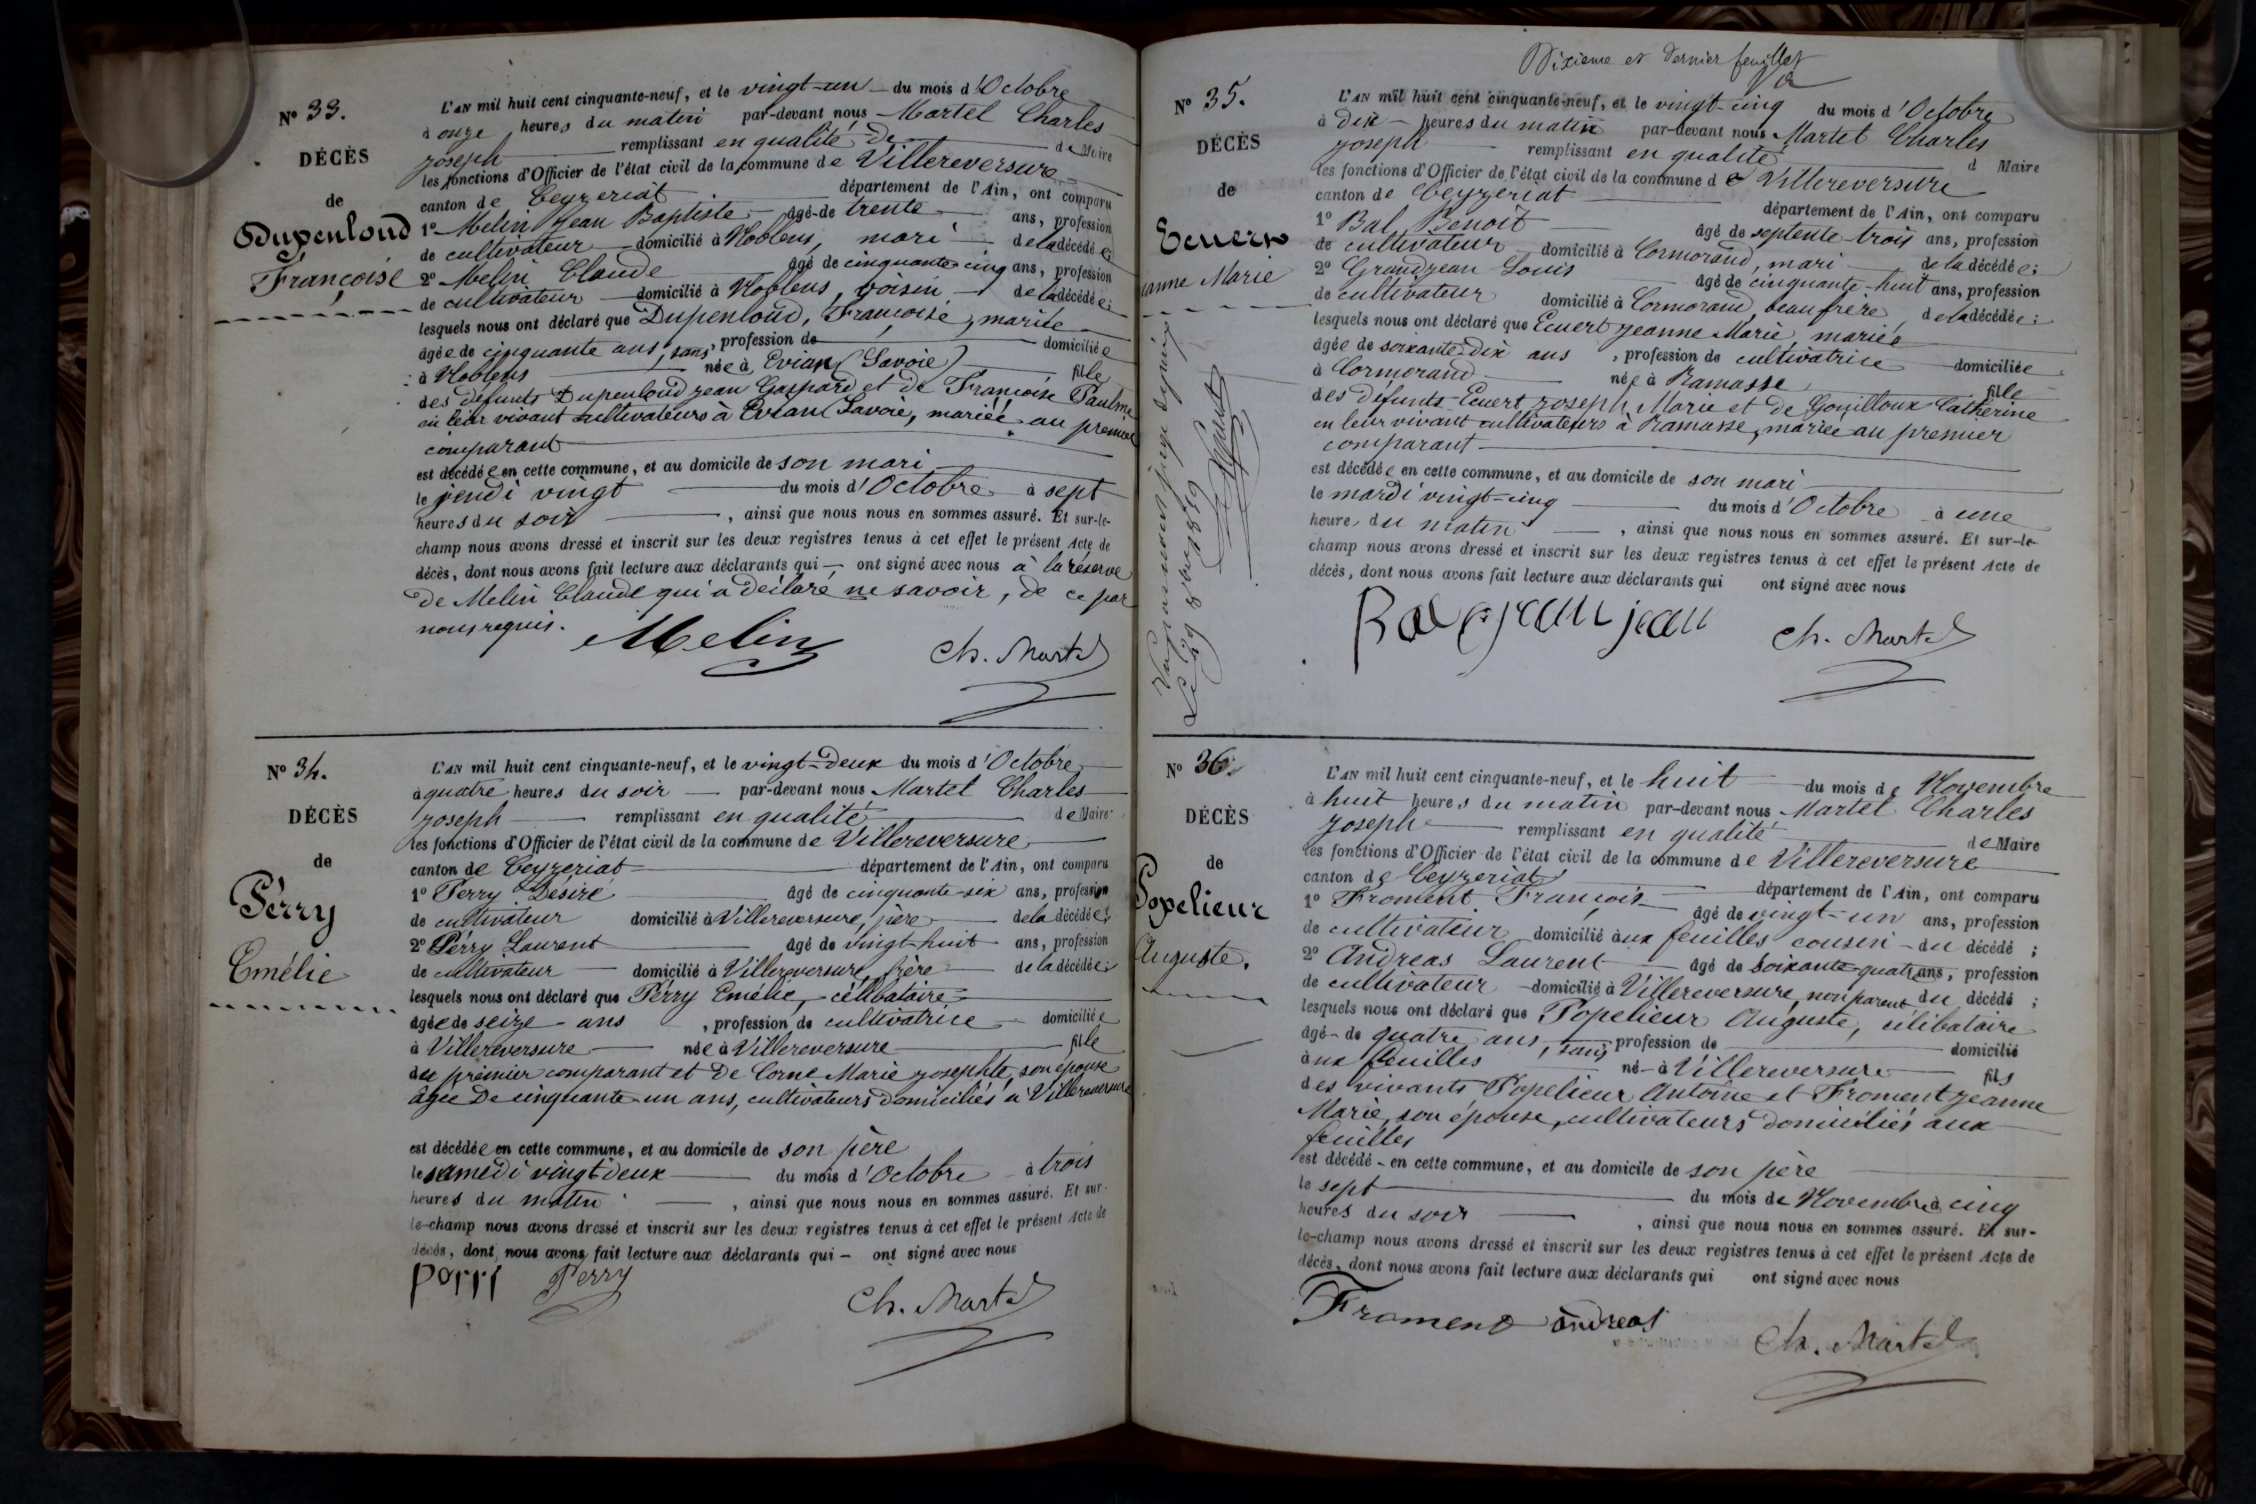 N° 33.
DÉCÈS
de
Dupenloud
Françoise
L'AN mil huit cent cinquante-neuf, et le vingt-un du mois d'Octobre
à onze heures du matin par-devant nous Martel Charles
Joseph remplissant en qualité de de Maire
les fonctions d'Officier de l'état civil de la commune de Villereversure
canton de Ceyzeriat département de l'Ain, ont comparu
1° Melin Jean Baptiste âgé de trente ans, profession
de cultivateur domicilié à Noblens, mari de la décédée;
2° Melin Claude âgé de cinquante cinq ans, profession
de cultivateur domicilié à Noblens, voisin de la décédée;
lesquels nous ont déclaré que Dupenloud, Françoise, mariée
âgée de cinquante ans, sans, profession de domiciliée
à Noblens née à Evian (Savoie) fille
des défunts Dupenloud Jean Gaspard et de Françoise Paulme
en leur vivant cultivateurs à Evian Savoie, mariée au premier
comparant
est décédée en cette commune, et au domicile de son mari
le jeudi vingt du mois d'Octobre à sept
heures du soir, ainsi que nous nous en sommes assuré. Et sur-le-
champ nous avons dressé et inscrit sur les deux registres tenus à cet effet le présent Acte de
décès, dont nous avons fait lecture aux déclarants qui ont signé avec nous à la réserve
de Melin Claude qui a déclaré ne savoir, de ce par
nous requis.
Melin
Ch. Martel
N° 34.
DÉCÈS
de
Pérry
Emélie
L'AN mil huit cent cinquante-neuf, et le vingt-deux du mois d'Octobre
à quatre heures du soir par-devant nous Martel Charles
Joseph remplissant en qualité de Maire
les fonctions d'Officier de l'état civil de la commune de Villereversure
canton de Ceyzeriat département de l'Ain, ont comparu
1° Perry Désiré âgé de cinquante-six ans, profession
de cultivateur domicilié à Villereversure, père de la décédée;
2° Pérry Laurent âgé de vingt-huit ans, profession
de cultivateur domicilié à Villereversure, frère de la décédée;
lesquels nous ont déclaré que Pérry Emélie, célibataire
âgée de seize ans, profession de cultivatrice domiciliée
à Villereversure née à Villereversure fille
du premier comparant et de Corne Marie Josephte, son épouse
âgée de cinquante-un ans, cultivateurs domiciliés à Villereversure
est décédée en cette commune, et au domicile de son père
le samedi vingt deux du mois d'Octobre à trois
heures du matin, ainsi que nous nous en sommes assuré. Et sur-
le-champ nous avons dressé et inscrit sur les deux registres tenus à cet effet le présent Acte de
décès, dont nous avons fait lecture aux déclarants qui – ont signé avec nous
Perry
Ch. Martel
Dixième et dernier feuillet
N° 35.
DÉCÈS
de
Ecuert
Jeanne Marie
L'AN mil huit cent cinquante-neuf, et le vingt-cinq du mois d'Octobre
à dix heures du matin par-devant nous Martel Charles
Joseph remplissant en qualité d Maire
les fonctions d'Officier de l'état civil de la commune de Villereversure
canton de Ceyzeriat département de l'Ain, ont comparu
1° Bal Benoît âgé de septente-trois ans, profession
de cultivateur domicilié à Cormorand, mari de la décédée;
2° Grandjean Louis âgé de cinquante-huit ans, profession
de cultivateur domicilié à Cormorand, beau frère de la décédée;
lesquels nous ont déclaré que Ecuert Jeanne Marie, mariée
âgée de soixante-dix ans, profession de cultivatrice domiciliée
à Cormorand née à Ramasse fille
des défunts Ecuert Joseph Marie et de Gouilloux Catherine
en leur vivant cultivateurs à Ramasse, mariée au premier
comparant
est décédée en cette commune, et au domicile de son mari
le mardi vingt-cinq du mois d'Octobre à une
heure du matin, ainsi que nous nous en sommes assuré. Et sur-le-
champ nous avons dressé et inscrit sur les deux registres tenus à cet effet le présent Acte de
décès, dont nous avons fait lecture aux déclarants qui ont signé avec nous
Ch. Martel
Vu par nous juge
N° 36.
DÉCÈS
de
Popelieur
Auguste.
L'AN mil huit cent cinquante-neuf, et le huit du mois de Novembre
à huit heures du matin par-devant nous Martel Charles
Joseph remplissant en qualité de Maire
les fonctions d'Officier de l'état civil de la commune de Villereversure
canton de Ceyzeriat département de l'Ain, ont comparu
1° Froment François âgé de vingt-un ans, profession
de cultivateur domicilié aux feuilles cousin du décédé;
2° Andreas Laurent âgé de soixante-quatre ans, profession
de cultivateur domicilié à Villereversure, non parent du décédé;
lesquels nous ont déclaré que Popelieur Auguste, célibataire
âgé de quatre ans, sans profession de domicilié
aux feuilles né à Villereversure fils
des vivants Popelieur Antoine et Froment Jeanne
Marie, son épouse, cultivateurs domiciliés aux
feuilles
est décédé en cette commune, et au domicile de son père
le sept du mois de Novembre à cinq
heures du soir, ainsi que nous nous en sommes assuré. Et sur-
le-champ nous avons dressé et inscrit sur les deux registres tenus à cet effet le présent Acte de
décès, dont nous avons fait lecture aux déclarants qui ont signé avec nous
Froment andreas
Ch. Martel